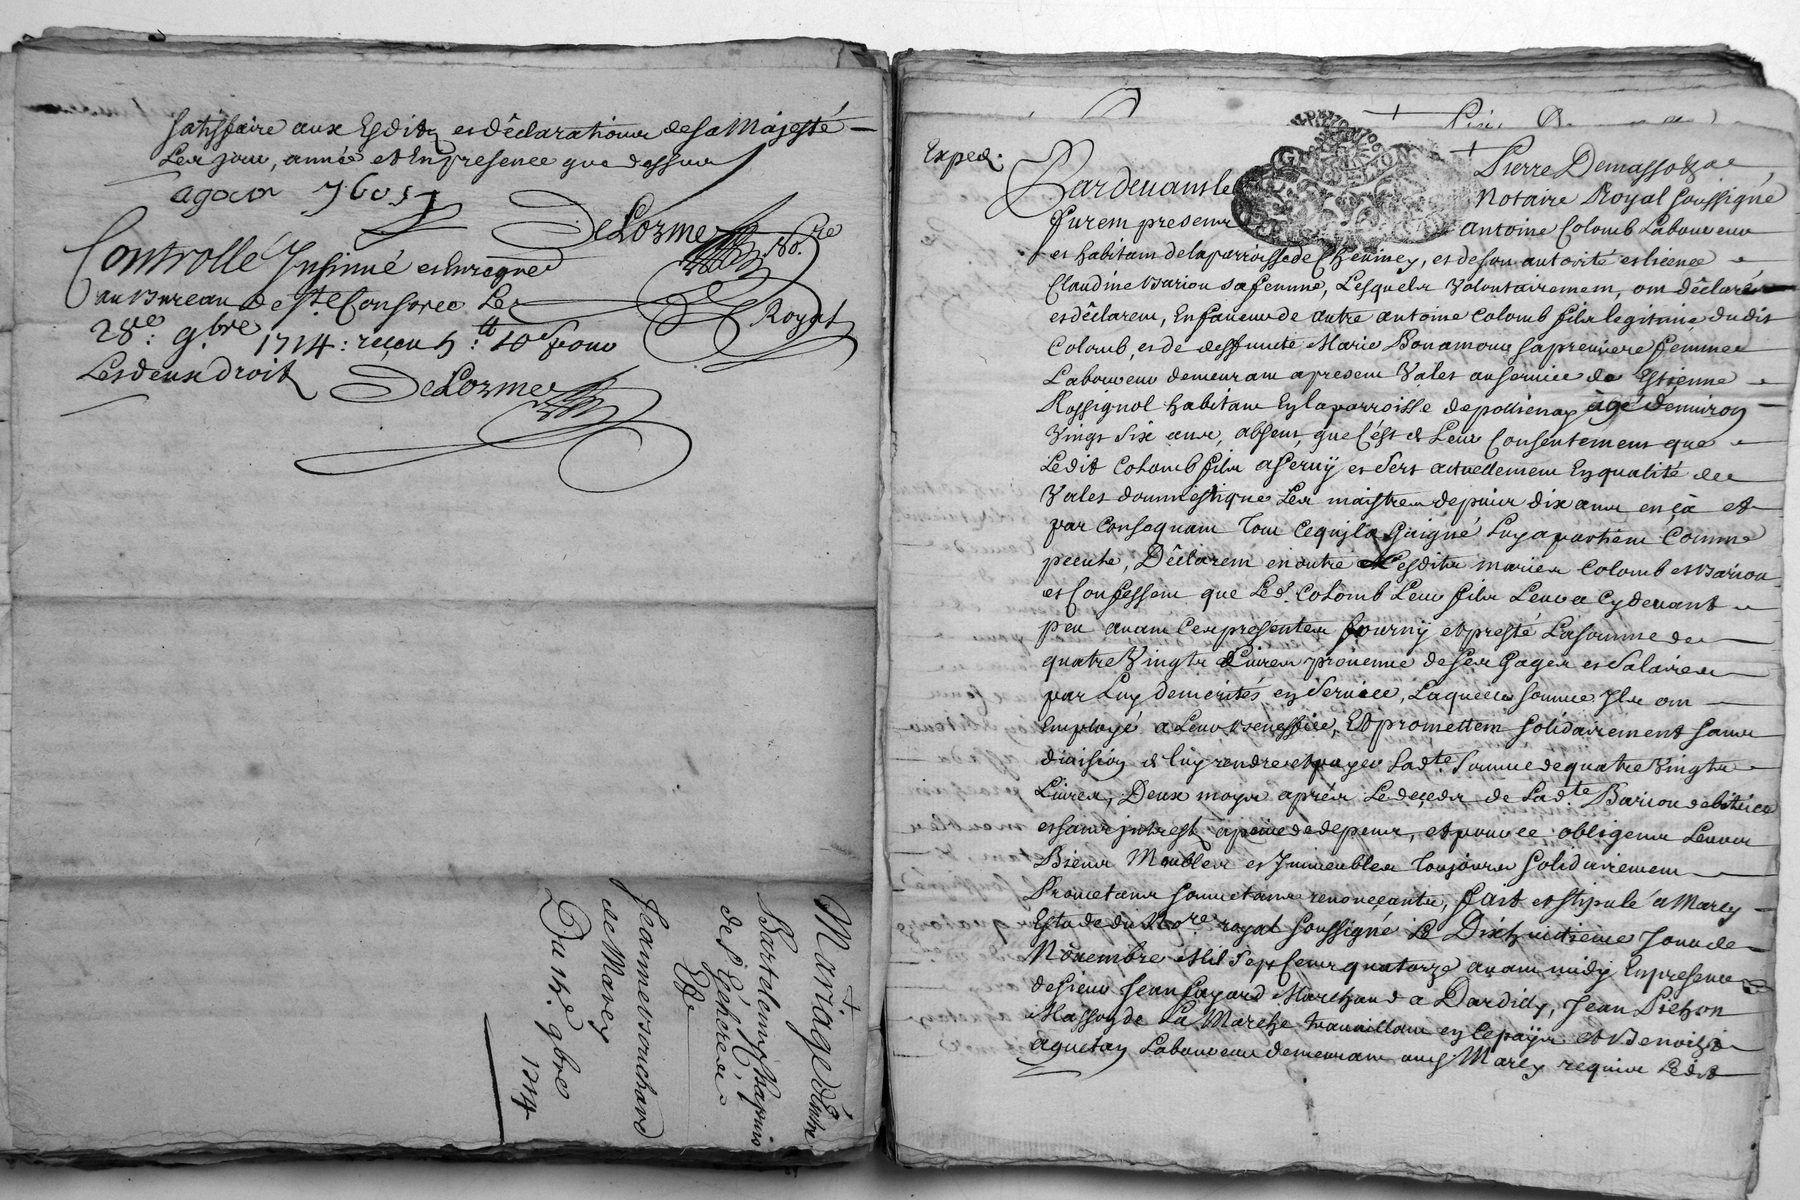 satisfaire aux Esdits et déclarations de sa Majesté
Les jour, année et En presence que dessus
Controllé Insinué et
DeLorme
No.re
Royal
au Bureau de s.te Consorce Le
28.e 9.bre 1714: receu 5.tt 10.s pour
Les deux droits
DeLorme
Mariage d'Entre
Bartelemy
de s.t Genis
Et
Jeanne Bouchard
de Marcy
Du 9.bre
1714
Exped.
Pardevant le
Pierre Demasso
Notaire Royal soussigné
furent presens
antoine Colomb Laboureur
et habitant de la parroisse de Chevinay, et de son autorité et licence
Claudine Bariou sa femme, Lesquels Volontairement, ont déclaré
et déclarent, En faveur de autre antoine Colomb fils legitime dudit
Colomb, et de deffuncte Marie Bonamour sa premiere femme
Laboureur demeurant a present Valet au service de Estienne
Rossignol habitant En la parroisse de pollienay âgé d'environ
Vingt six ans, absent, que C'est de Leur Consentement que
Ledit Colomb fils a servy et sert actuellement En qualité de
Valet domestique Les maistres depuis dix ans en çà et
par Consequant tout ce qu'il a Gaigné Luy apartient Comme
pecule, Déclarent en outre Lesdits mariés Colomb et Bariou
et Confessent que Led. Colomb Leur fils Leur a Cy devant
peu avant Ces presentes fourny et presté La somme de
quatre Vingts Livres provenue de ses Gages et salaires
par Luy demerités en service, Laquelle somme Ils ont
Employé a Leur Benefice, Et promettent solidairement sans
division de luy rendre et payer Lad.te somme de quatre Vingts
Livres, Deux moys aprés Le deceds de Lad.te Bariou debitrice
et sans intrest, a peine de depens, et pour ce obligent Leurs
Biens Meubles et Immeubles toujours solidairement
Promettans soumetans renonçants, fait et stipulé a Marcy
Estude du No.re royal soussigné Le Dixhuitieme Jour de
Novembre Mil sept Cent quatorze avant midy En presence
de sieur Jean fayard Marchand a Dardilly, Jean Pichon
Masson de La Marche travaillant en Ce pays et Benoist
Laboureur demeurant aud. Marcy requis Ledit